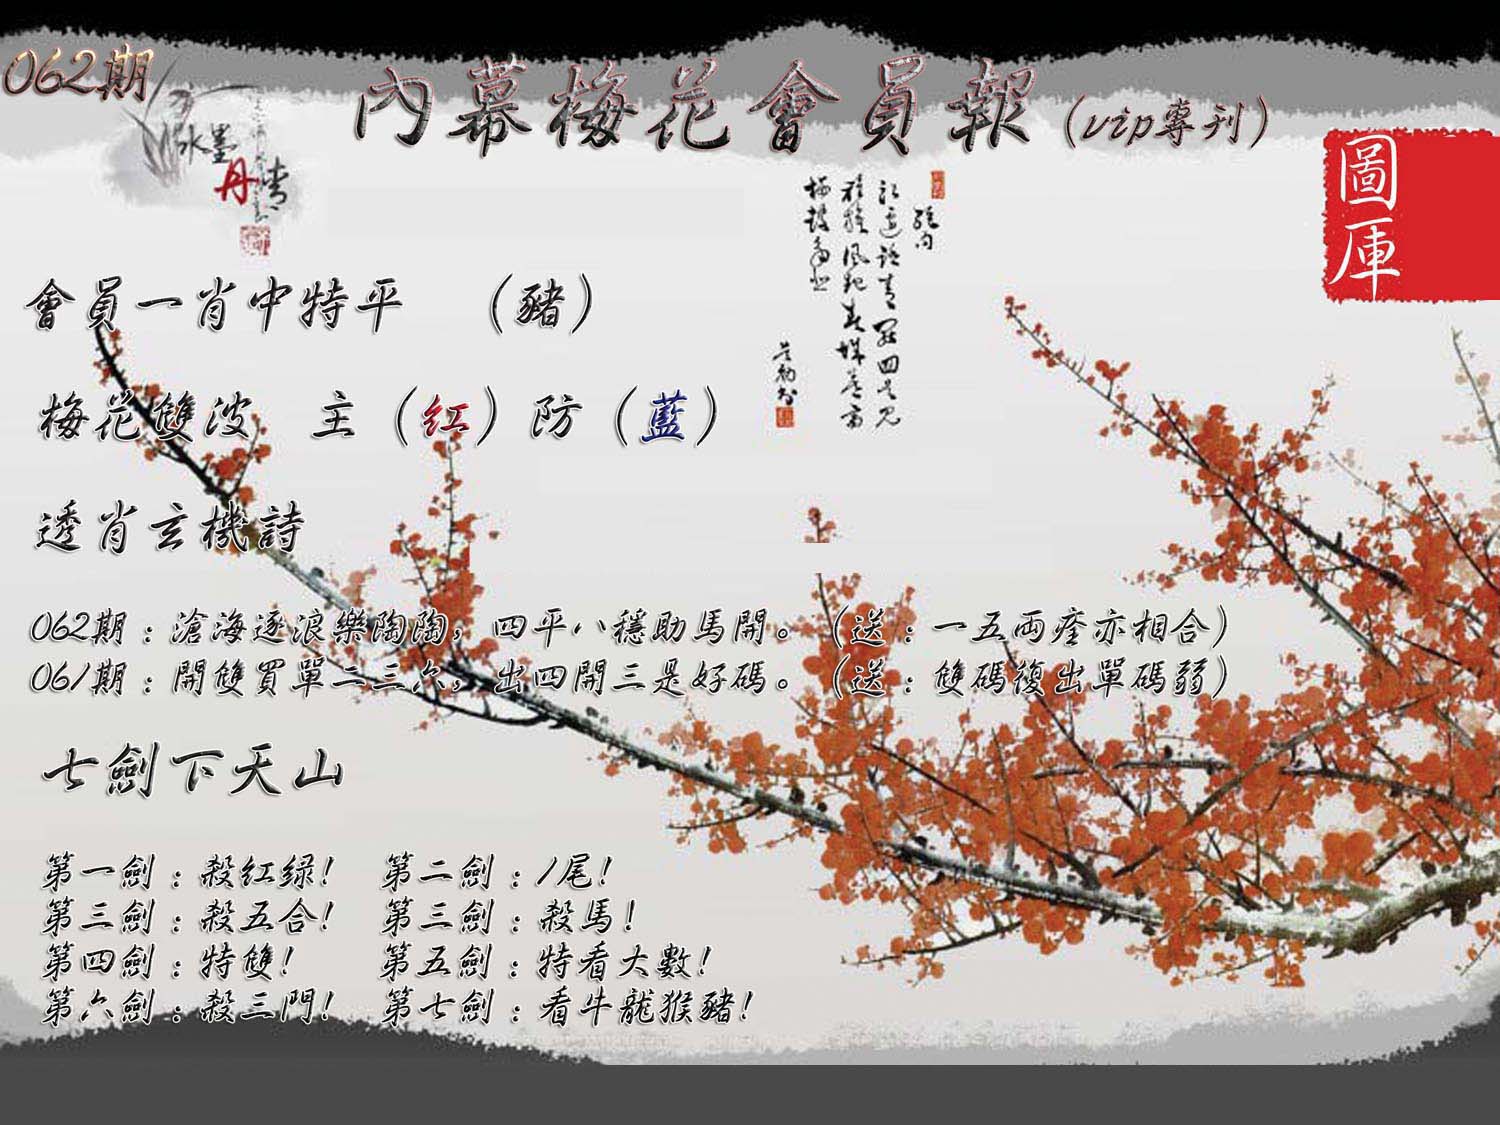 062期
內幕梅花會員報(vip專刊)
水墨
丹青
圖庫
會員一肖中特平 (豬)
梅花雙波 主(紅)防(藍)
透肖玄機詩
062期:滄海逐浪樂陶陶,四平八穩助馬開。(送:一五両痊亦相合)
061期:開雙買單二三六,出四開三是好碼。(送:雙碼復出單碼弱)
七劍下天山
第一劍:殺紅绿! 第二劍:1尾!
第三劍:殺五合! 第三劍:殺馬!
第四劍:特雙! 第五劍:特看大數!
第六劍:殺三門! 第七劍:看牛龍猴豬!